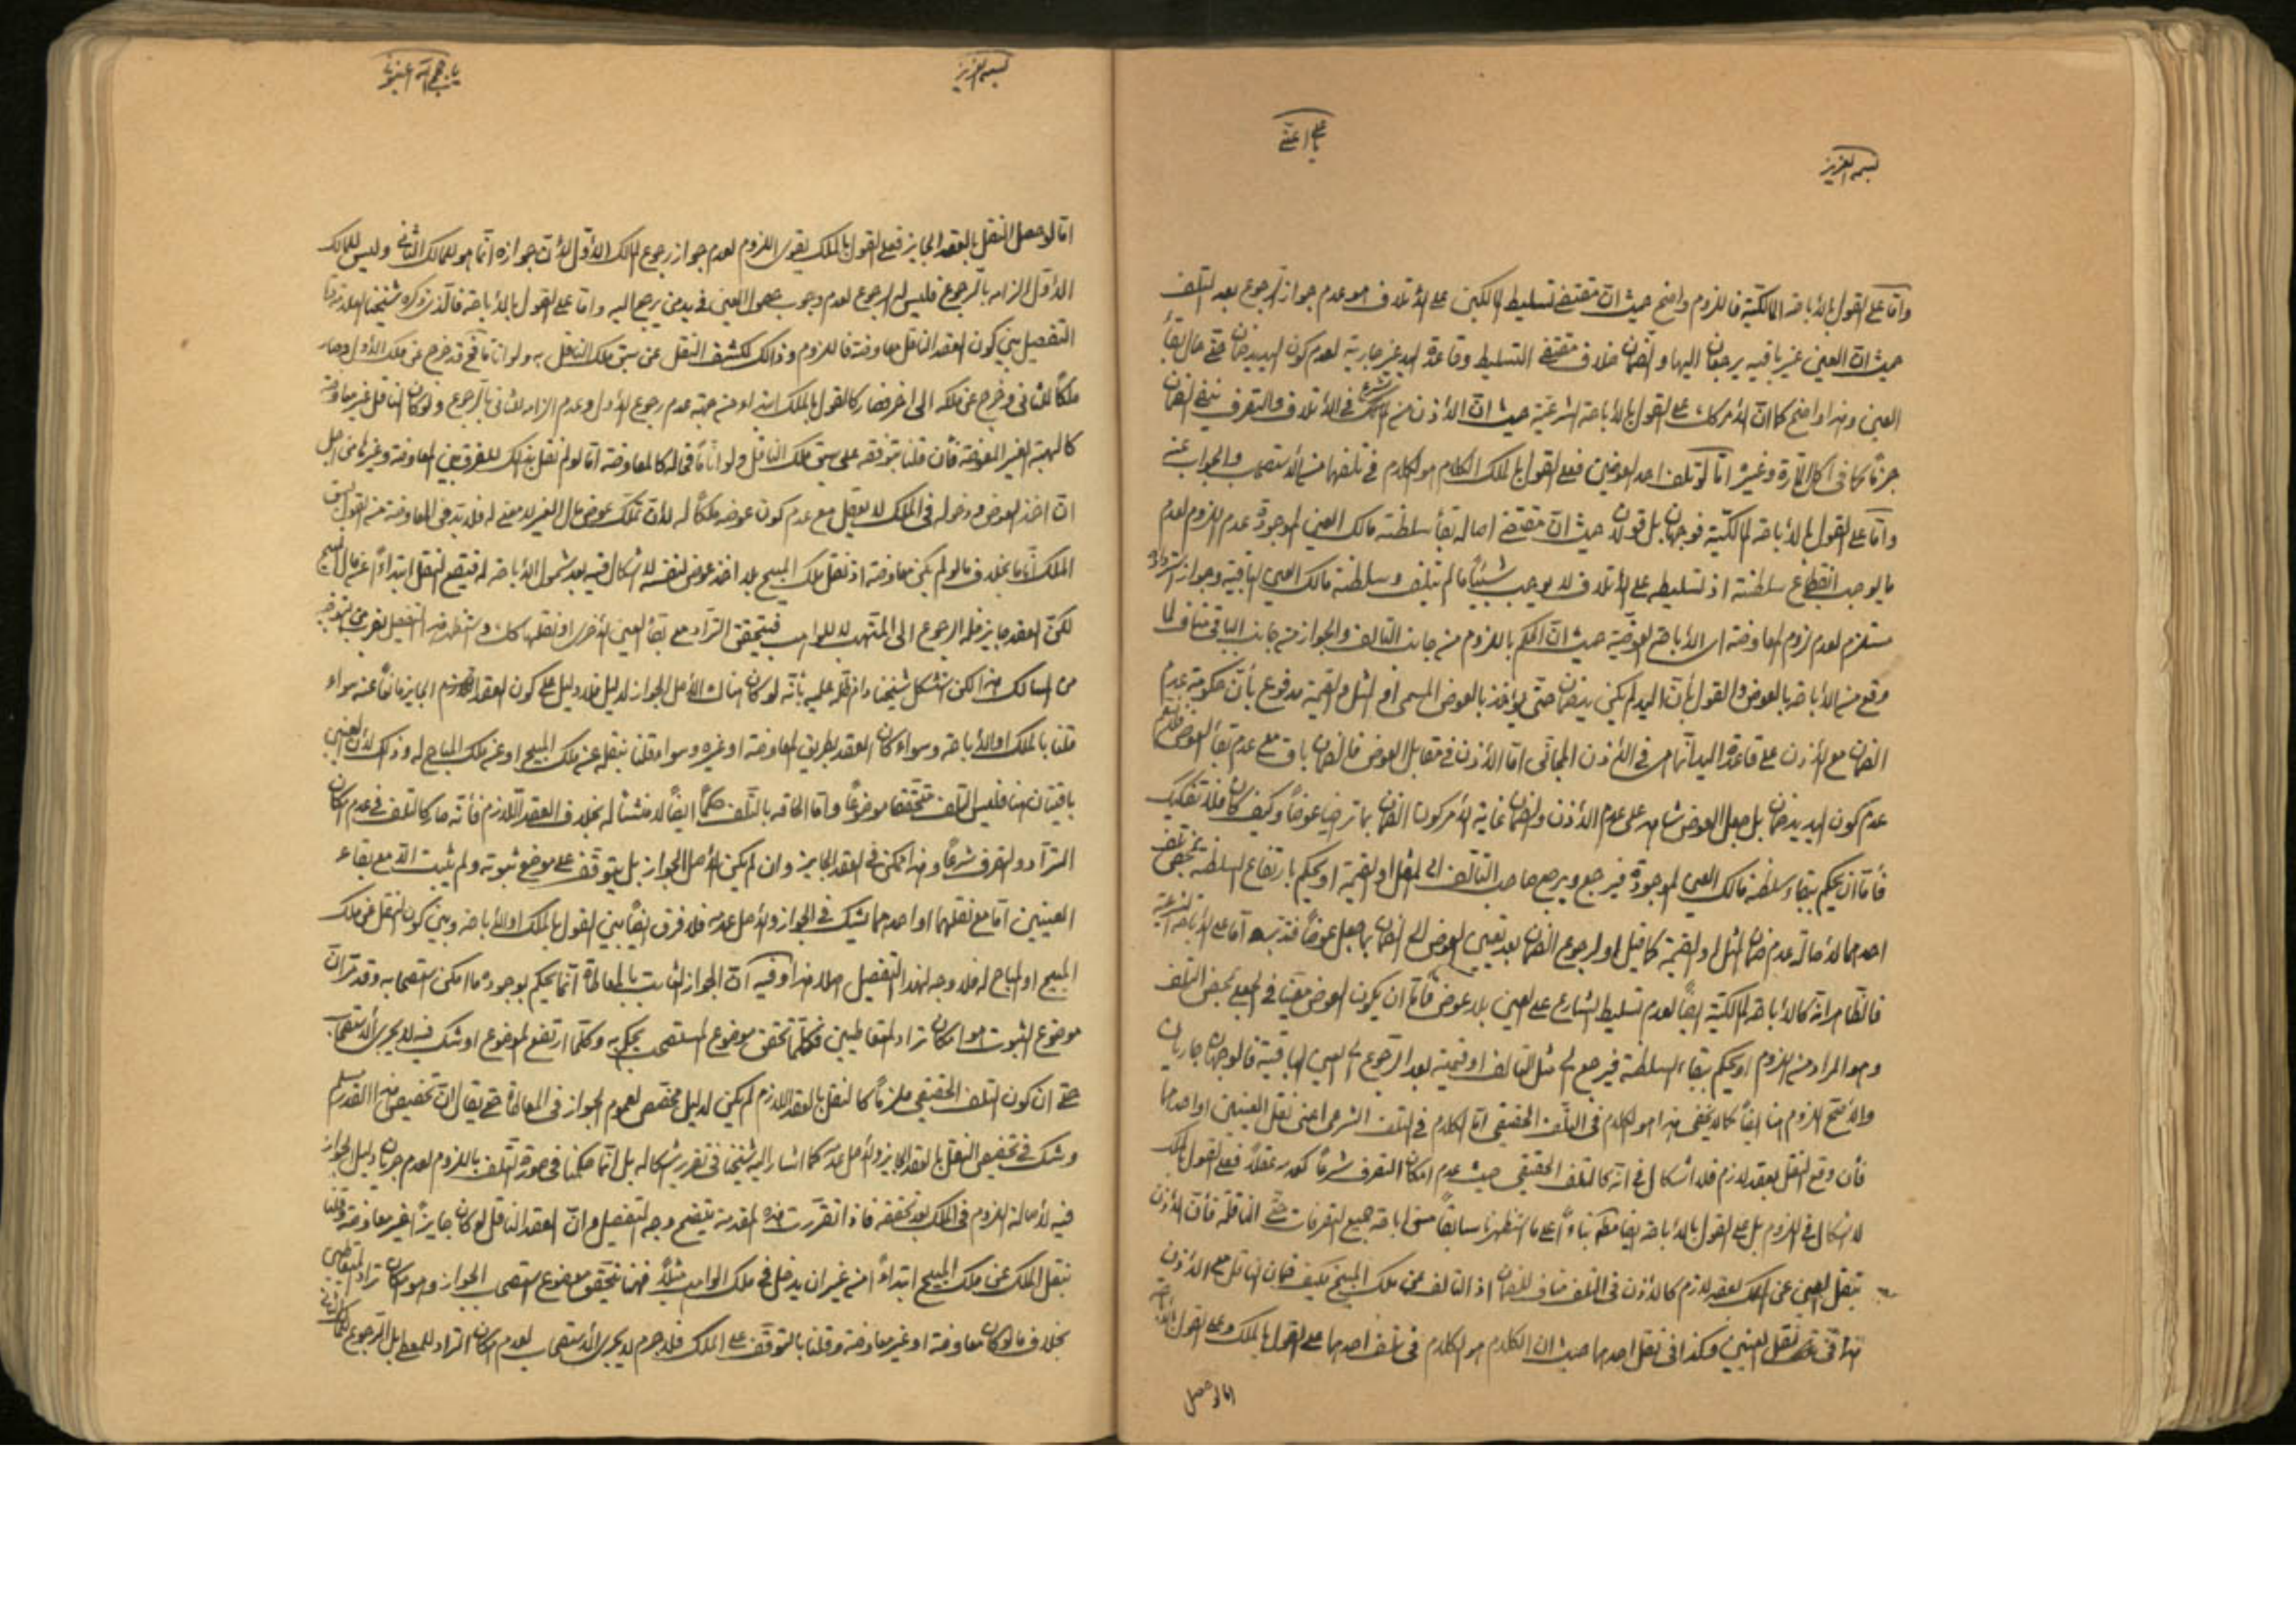 بسمه العزيز
يا علي اغثني
واما على القول بالأباحة المالكية فاللزوم واضح حيث ان مقتضى تسليط المالكين على الأتلاف هو عدم جواز الرجوع بعد التلف
حيث ان العين غير باقية يرجعان اليها والضمان خلاف مقتضى التسليط وقاعدة اليد غير جارية لعدم كون اليد يد ضمان حتى حال بقاء
العين وهذا واضح كما ان الأمر كك على القول بالأباحة الشرعية حيث ان الأذن من الشرع في الأتلاف والتصرف ينفي الضمان
جزما كما في اكل المارة وغيره اما لو تلف احد العوضين فعلى القول بالملك الكلام هو الكلام في تلفهما من الأستصحاب والجواب عنه
واما على القول بالأباحة المالكية فوجهان بل قولان حيث ان مقتضى اصالة بقاء سلطنة مالك العين الموجودة عدم اللزوم لعدم
ما يوجب انقطاع سلطنة اذ تسليطه على الأتلاف لا يوجب شيئا ما لم يتلف وسلطنة مالك العين الباقية وجواز
مستلزم لعدم لزوم المعاوضة اى الأباحة المعوضية حيث ان الحكم باللزوم من جانب التالف والجواز من جانب الباقي مناف لما
وقع من الأباحة بالعوض والقول بأن اليد لم يكن يد ضمان حتى يؤخذ بالعوض المسمى او المثل والقيمة مدفوع بأن حكومة عدم
الضمان مع الأذن على قاعدة اليد انما هى في الأذن المجاني اما الأذن في مقابل العوض فالضمان باق مع عدم بقاء العوض
عدم كون اليد يد ضمان بل جعل العوض شاهد على عدم الأذن والضمان غاية الأمر كون الضمان بما تراضيا عوضا وكيف كان فلا تفكيك
فأما ان يحكم ببقاء سلطنة مالك العين الموجودة فيرجع ويرجع صاحب التالف الى المثل او القيمة او يحكم بارتفاع السلطنة
احدهما لأصالة عدم ضمان المثل والقيمة كما قيل او لرجوع الضمان بعد تعيين العوض الى الضمان بما جعل عوضا فتدبر اما على الأباحة الشرعية
فالظاهر انه كالأباحة المالكية ايضا لعدم تسليط الشارع على العين بلا عوض فأما ان يكون العوض معينا في الجعلي بمحض التلف
وهو المراد من اللزوم او يحكم ببقاء السلطنة فيرجع الى مثل التالف او قيمته بعد الرجوع الى العين الباقية فالوجهان جاريان
والأصح اللزوم هنا ايضا كما لا يخفى هذا هو الكلام في التلف الحقيقي اما الكلام في التلف الشرعي اعني نقل العينين او احدهما
فأن وقع النقل بعقد لازم فلا اشكال في انه كالتلف الحقيقي حيث عدم امكان التصرف شرعا كعدمه عقلا فعلى القول بالملك
لا اشكال في اللزوم بل على القول بالأباحة ايضا بناء على ما استظهرنا سابقا من اباحة جميع التصرفات حتى الناقلة فأن الأذن
بنقل العين عن الملك بعقد لازم كالأذن في التلف مناف للضمان اذ التالف عن ملك المبيح
هذا في نقل العينين وكذا في نقل احدهما حيث ان الكلام هو الكلام في تلف احدهما على القول بالملك وعلى القول بالأباحة
اما لو حصل
بسمه العزيز
اما لو حصل النقل بالعقد الجايز فعلى القول بالملك يقوى اللزوم لعدم جواز رجوع المالك الأول لأن جوازه انما هو للمالك الثاني وليس للمالك
الأول الزامه بالرجوع فليس له الرجوع لعدم وجوب حصول العين في يد من يرجع اليه واما على القول بالأباحة فالذي ذكره شيخنا العلامة
التفصيل بين كون العقد الناقل معاوضة فاللزوم وذلك لكشف النقل عن سبق ملك الناقل به ولو انا ما فح قد خرج عن ملك الأول وصار
ملكا للثاني وخرج عن ملكه الى اخر فصار كالقول بالملك ابتداء من جهة عدم رجوع الأول وعدم الزام الثاني بالرجوع ولو كان الناقل غير معاوضة
كالهبة الغير المعوضة فأن قلنا بتوقفه على سبق ملك الناقل ولو انا ما فح انه كالمعاوضة اما لو لم نقل بذلك للفرق بين المعاوضة وغيرها من اجل
ان اخذ العوض ودخوله في الملك لا يعقل مع عدم كون عوضه ملكا له لأن تملك عوض مال الغير لا معنى له فلا بد في المعاوضة من القول بسبق
الملك انا ما بخلاف ما لو لم يكن معاوضة اذ نقل ملك المبيح بلا اخذ عوض لنفسه لا اشكال فيه بعد شمول الأباحة له فيقع النقل ابتداء عن مال المبيح
لكن العقد جايز فله الرجوع الى المتهب فيتحقق التراد مع بقاء العين الأخرى او نقلها كك
من المسالك هذا لكن استشكل شيخنا دام ظله عليه بأنه لو كان هناك الأصل الجواز لدليل فلا دليل على كون العقد الجايز مانعا عنه سواء
قلنا بالملك او الأباحة وسواء كان العقد بطريق المعاوضة او غيره وسواء قلنا بنقله عن ملك المبيح او عن ملك المباح له وذلك لأن العينين
باقيتان هنا فليس التلف متحققا موضوعا واما الحاقه بالتلف حكما ايضا لا منشأ له بخلاف العقد اللازم فأنه صار كالتلف في عدم امكان
التراد والتصرف شرعا وهذا ممكن في العقد الجايز وان لم يكن الأصل الجواز بل يتوقف على موضع ثبوته ولم يثبت الا مع بقاء
العينين اما مع نقلهما او احدهما يشك في الجواز والأصل عدمه فلا فرق ايضا بين القول بالملك او الأباحة وبين كون النقل عن ملك
المبيح او المباح له فلا وجه لهذا التفصيل اصلا هذا وفيه ان الجواز الثابت بالمعاطاة انما يحكم بوجوده ما امكن استصحابه وقد مر ان
موضوع الثبوت هو امكان تراد المتعاطيين فكلما تحقق موضوع المستصحب يحكم به وكلما ارتفع الموضوع او شك فيه لا يجرى الأستصحاب
حتى ان كون التلف الحقيقي ملزما كالنقل بالعقد اللازم لم يكن لدليل مخصص لعموم الجواز في المعاطاة حتى يقال ان تخصيص هذا القدر مسلم
وشك في تخصيص النقل بالعقد الجايز والأصل عدمه كما اشار اليه شيخنا في تقرير اشكاله بل انما حكمنا في صورة التلف باللزوم لعدم جريان دليل الجواز
فيه لأصالة اللزوم في الملك بعد تحققه فاذا تقررت هذه المقدمة يتضح وجه التفصيل وان العقد الناقل لو كان جايزا غير معاوضة وقلنا
بنقل الملك عن ملك المبيح ابتداء من غير ان يدخل في ملك الواهب مثلا فهنا يتحقق موضوع استصحاب الجواز وهو امكان تراد المتعاطيين
بخلاف ما لو كان معاوضة او غير معاوضة وقلنا بالتوقف على الملك فلا جرم لا يجرى الأستصحاب لعدم امكان التراد للمعطى بل الرجوع للمالك الثاني